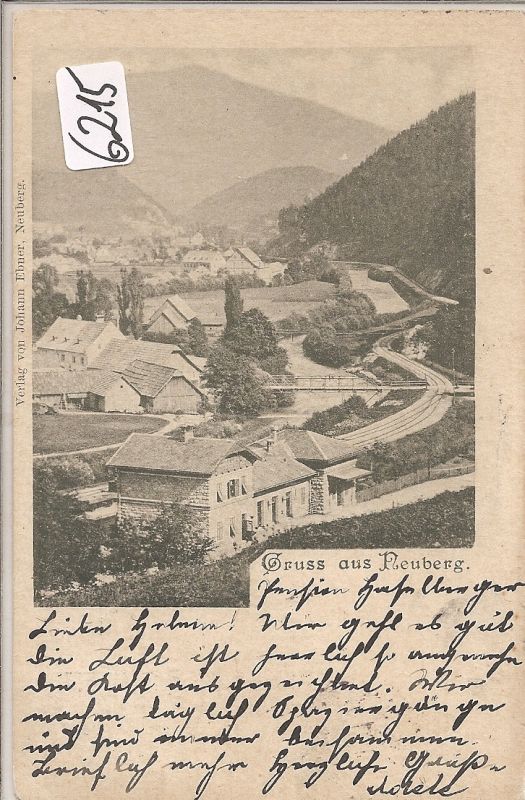 6215
Verlag von Johann Ebner, Neuberg.
Gruss aus Neuberg.
Pension Haselberger
Liebe Helene! Mir gehl es gut
die Luft ist herrlich so angenehm
die Kost ausgezeichnet. Wir
machen täglich Spaziergänge
und sind immer beisammen.
Brieflich mehr Herzliche Grüße